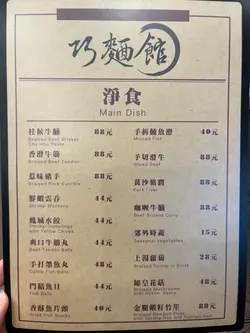 巧麵館
淨食
Main Dish
柱候牛腩 88元
Braised Beef Brisket
Chu Hou Paste
香滑牛筋 88元
Beef Tendon
惹味豬手 88元
Braised Pork Knuckle
鮮蝦雲吞 44元
Shrimp Wontons
鳳城水餃 44元
Shrimp Dumplings
with Yellow Chives
爽口牛筋丸 44元
Beef Tendon Balls
手打墨魚丸 48元
Cuttle Fish Balls
門鱔魚旦 44元
Fish Balls
香酥魚片頭 40元
Fried Fish Snacks
手拆鯪魚滑 40元
Minced Fish
手切滑牛 88元
Sliced Beef
黃沙豬膶 88元
咖喱牛腩 88元
Beef Brisket Curry
郊外時蔬 15元
Seasonal Vegetables
上湯蘿蔔 28元
Braised Turnip in Broth
蠔皇花菇 48元
Braised Mushrooms
with Oyster Sauce
金腿蝦籽竹笙 88元